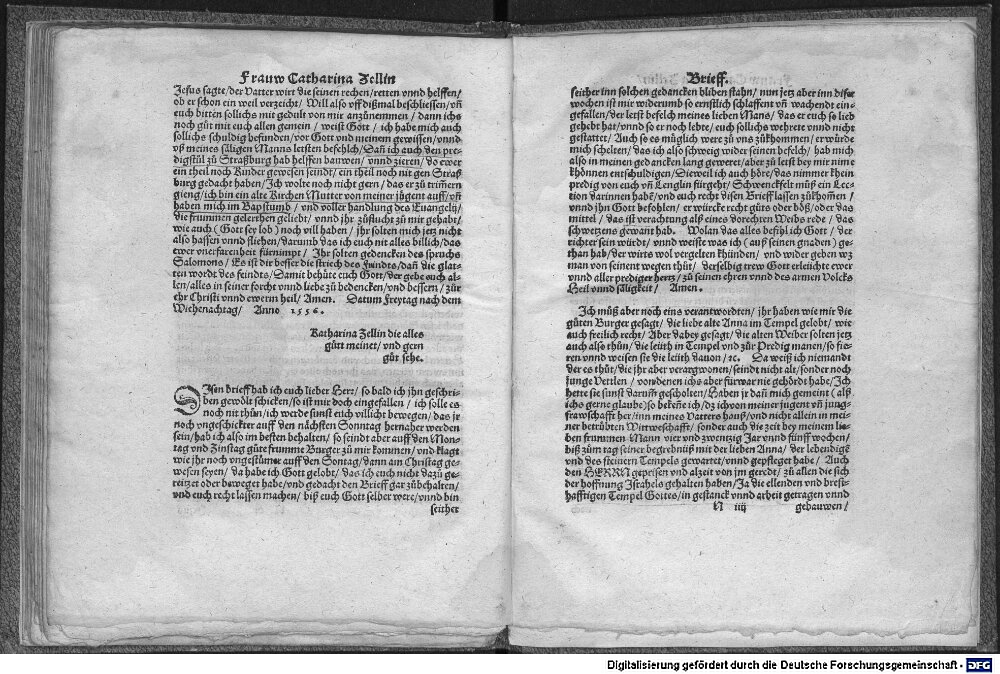 Frauw Catharina Zellin
Jesus sagte / der Vatter wirt die seinen rechen / retten vnnd helffen /
ob er schon ein weil verzeicht / Will also vff dißmal beschliessen / vñ
euch bitten sollichs mit gedult von mir anzůnemmen / dann ichs
noch gůt mit euch allen gemein / weist Gott / ich habe mich auch
sollichs schuldig befunden / vor Gott vnd meinem gewissen / vnnd
vß meines säligen Manns letsten befehlch / Dañ ich auch den pre-
digstůl zů Straßburg hab helffen bauwen / vnnd zieren / do ewer
ein theil noch Kinder gewesen seindt / ein theil noch nit gen Straß
burg gedacht haben / Ich wolte noch nicht gern / das er zů trim̃ern
gieng / ich bin ein alte Kirchen Mutter von meiner jugent auff / vñ
haben mich im Bapstumb / vnd voller handlung des Euangelij /
die frummen gelerthen geliebt / vnnd jhr zůflucht zů mir gehabt /
wie auch (Gott sey lob) noch will haben / jhr solten mich jetz nicht
also hassen vnnd fliehen / darumb das ich euch nit alles billich / das
ewer vnerfarenheit fürnimpt / Ihr solten gedencken des spruchs
Salomons / Es ist dir besser die striech des freündts / dañ die glat-
ten wordt des feindts / Damit behüte euch Gott / der gebe euch al-
len / alles in seiner forcht vnnd liebe zů bedencken / vnd bessern / zůr
ehr Christi vnnd ewerm heil / Amen. Datum Freytag nach dem
Wiehenachtag / Anno 1556.
Katharina Zellin die alles
gůtt meinet / vnd gern
gůt sehe.
Disen brieff hab ich euch lieber Herr / so bald ich jhn geschri-
ben gewölt schicken / so ist mir doch eingefallen / ich solle es
noch nit thůn / ich werde sunst euch villicht bewegen / das jr
noch vngeschickter auff den nächsten Sonntag hernaher werden
sein / hab ich also im besten behalten / so seindt aber auff den Mon-
tag vnd Zinstag gůte frumme Burger zů mir kommen / vnd klagt
wie jhr noch vngestümer auff den Sontag / dann am Christag ge-
wesen seyen / da habe ich Gott gelobt / das ich euch nicht dazů ge-
reitzet oder beweget habe / vnd gedacht den Brieff gar zůbehalten /
vnd euch recht lassen machen / biß euch Gott selber were / vnnd bin
seither
Brieff.
seither inn solchen gedancken bliben stahn / nun jetz aber inn diser
wochen ist mir widerumb so ernstlich schlaffent vñ wachendt ein-
gefallen / der letst befelch meines lieben Mans / das er euch so lieb
gehebt hat / vnnd so er noch lebte / euch sollichs wehrete vnnd nicht
gestattet / Auch so es müglich were zů vns zůkhommen / er würde
mich schelten / das ich also schweig wider seinen befelch / hab mich
also in meinen gedancken lang geweret / aber zů letst bey mir nim̃e
khönnen entschuldigen / Dieweil ich auch höre / das nimmer khein
predig von euch vñ Lenglin fürgeht / Schwenckfelt můß ein Lec-
tion darinnen habẽ / vnd euch recht disen Brieff lassen zůkhom̃en /
vnnd jhn Gott befohlen / er würcke recht gůts oder böß / oder das
mittel / das ist verachtung alß eines dorechten Weibs rede / das
schwetzens gewant hab. Wolan das alles befühl ich Gott / der
richter sein würdt / vnnd weist was ich (auß seinen gnaden) ge-
than hab / der wirts wol vergelten khünden / vnd wider geben wz
man von seinent wegen thůt / derselbig trew Gott erleücht ewer
vnnd aller prediger hertz / zů seinen ehren vnnd des armen Volcks
Heil vnnd säligkeit / Amen.
Ich můß aber noch eins verantwordten / jhr haben wie mir die
gůten Burger gesagt / die liebe alte Anna im Tempel gelobt / wie
auch freilich recht / Aber dabey gesagt / die alten Weiber solten jetz
auch also thůn / die leüth in Tempel vnd zůr Predig manen / so fie-
ren vnnd weisen sie die leüth dauon / ꝛc. Da weiß ich niemandt
der es thůt / die jhr aber verargwonen / seindt nicht alt / sonder noch
junge Vettlen / von denen ichs aber fürwar nie gehördt habe / Ich
hette sie sunst darum̃ gescholten / Haben jr dañ mich gemeint (alß
ichs gerne glaube) so bekeñe ich / dz ich von meiner jugent vñ jung-
frawschafft her / inn meines Vatters hauß / vnd nicht allein in mei-
ner betrübten Wittweschafft / sonder auch die zeit bey meinem lie-
ben frummen Mann vier vnd zwentzig Jar vnnd fünff wochen /
biß zům tag seiner begrebnüß mit der lieben Anna / der lebendigẽ
vnd des steinern Tempels gewartet / vnnd gepfleget habe / Auch
den HERRN gepriesen vnd alzeit von jm geredt / zů allen die sich
der hoffnung Israhels gehalten haben / Ja die ellenden vnd brest-
hafftigen Tempel Gottes / in gestanck vnnd arbeit getragen vnnd
N iiij gebauwen /
Digitalisierung gefördert durch die Deutsche Forschungsgemeinschaft - DFG